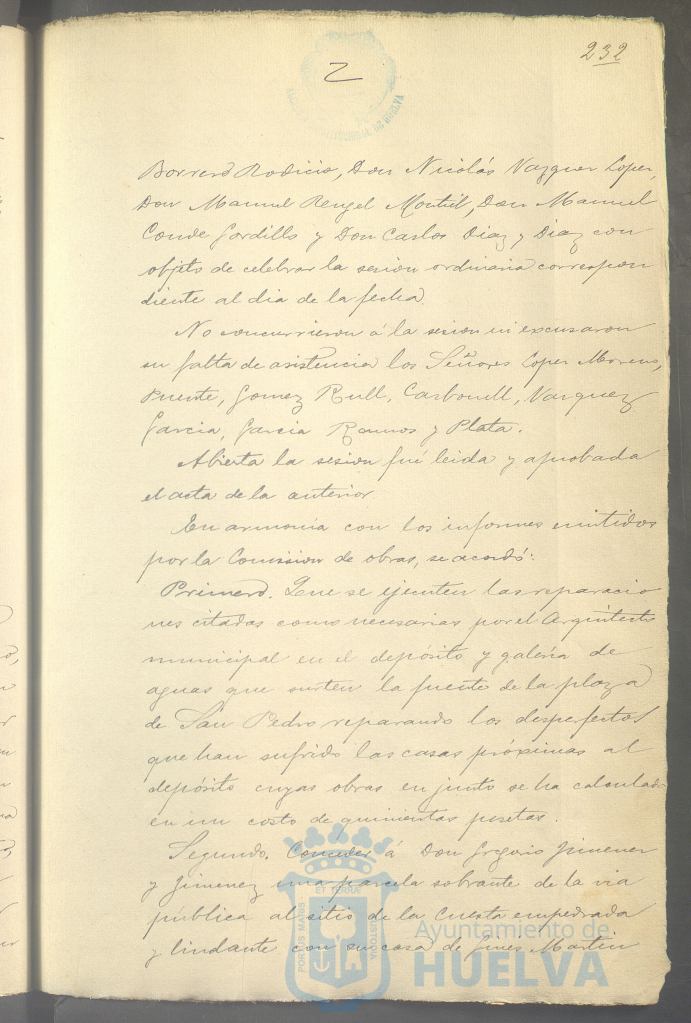 2
232
Borrero Rodicio, Don Nicolás Vazquez Lopez,
Don Manuel Rengel Montiel, Don Manuel
Conde Gordillo y Don Carlos Diaz y Diaz con
objeto de celebrar la sesion ordinaria correspon
diente al dia de la fecha.
No concurrieron á la sesion ni excusaron
su falta de asistencia los Señores Lopez Moreno,
Puente, Gomez Rull, Carbonell, Vazquez
Garcia, Garcia Ramos y Plata.
Abierta la sesion fué leida y aprobada
el acta de la anterior
En armonia con los informes emitidos
por la Comision de obras, se acordó:
Primero. Que se ejecuten las reparacio
nes citadas como necesarias por el Arquitecto
municipal en el depósito y galeria de
aguas que surten la fuente de la plaza
de San Pedro reparando los desperfectos
que han sufrido las casas próximas al
depósito cuyas obras en junto se ha calculado
en un costo de quinientas pesetas.
Segundo. Conceder á Don Gregorio Jimenez
y Jimenez una parcela sobrante de la via
pública al sitio de la Cuesta empedrada
y lindante con su casa de Ginés Martin
PORTUS MARIS
ET TERRAE
CUSTODIA
Ayuntamiento de
HUELVA